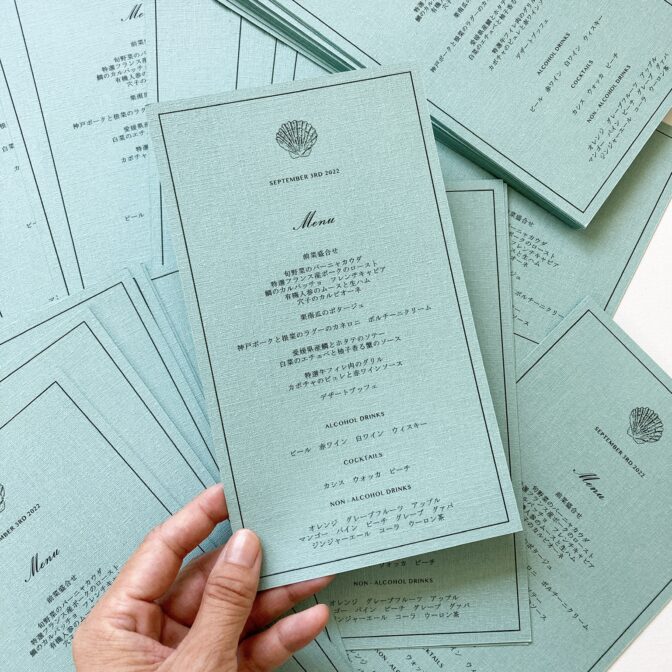 SEPTEMBER 3RD 2022
Menu
前菜盛合せ
旬野菜のバーニャカウダ
特選フランス産ポークのロースト
鯛のカルパッチョ フレンチキャビア
有機人参のムースと生ハム
穴子のカルピオーネ
栗南瓜のポタージュ
神戸ポークと根菜のラグーのカネロニ ポルチーニクリーム
愛媛県産鯛とホタテのソテー
白菜のエチュベと柚子香る蟹のソース
特選牛フィレ肉のグリル
カボチャのピュレと赤ワインソース
デザートブッフェ
ALCOHOL DRINKS
ビール 赤ワイン 白ワイン ウィスキー
COCKTAILS
カシス ウォッカ ピーチ
NON - ALCOHOL DRINKS
オレンジ グレープフルーツ アップル
マンゴー パイン ピーチ グレープ グァバ
ジンジャーエール コーラ ウーロン茶